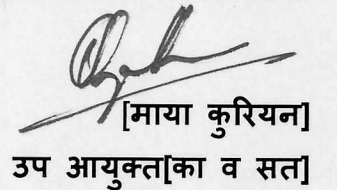 [माया कुरियन]
उप आयुक्त[का व सत]